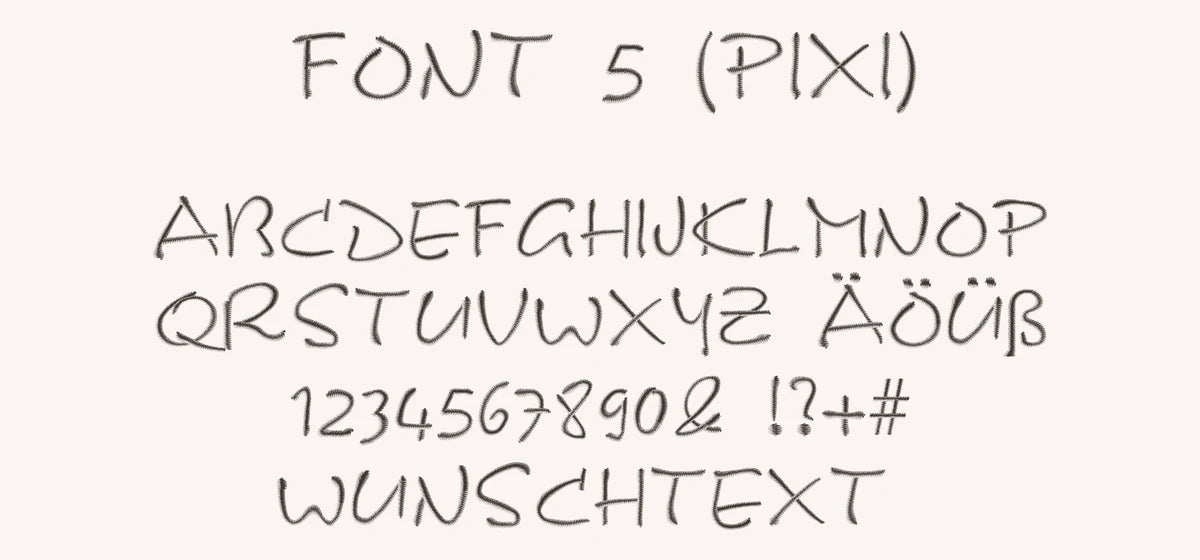 FONT 5 (PIXI)
ABCDEFGHIJKLMNOP
QRSTUVWXYZ ÄÖÜß
1234567890& !?+#
WUNSCHTEXT